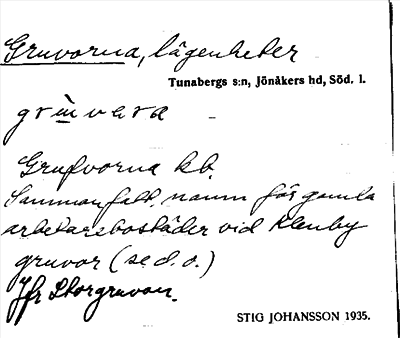 Gruvorna, lägenheter
Tunabergs s:n, Jönåkers hd, Söd. l.
Grufvorna kb.
Sammanfatt. namn för gamla
arbetarebostäder vid Klenby
gruvor (se d. o.)
Jfr Storgruvan.
STIG JOHANSSON 1935.